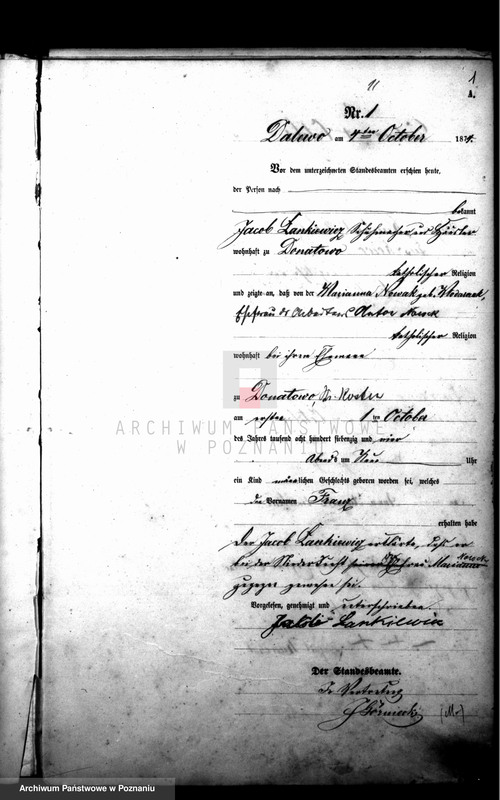 11
1
A.
Nr. 1
Dalewo am 4ten October 1874.
Vor dem unterzeichneten Standesbeamten erschien heute,
der Person nach
bekannt
Jacob Lankiewicz Schuhmacher und Häusler
wohnhaft zu Donatowo
katholischer Religion
und zeigte an, daß von der Marianna Nowak geb.
Ehefrau des Arbeiters Anton Nowak
katholischer Religion
wohnhaft bei ihrem Ehemann
zu Donatowo, Kr. Kosten
am ersten 1ten October
des Jahres tausend acht hundert siebenzig und vier
Abends um Neun Uhr
ein Kind männlichen Geschlechts geboren worden sei, welches
die Vornamen Franz
erhalten habe
Der Jacob Lankiewicz erklärte, daß er
bei der Niederkunft Marianna Nowak
zugegen gewesen sei.
Vorgelesen, genehmigt und unterschrieben.
Lankiewicz
Der Standesbeamte.
In Vertretung
ARCHIWUM PAŃSTWOWE
W POZNANIU
Archiwum Państwowe w Poznaniu